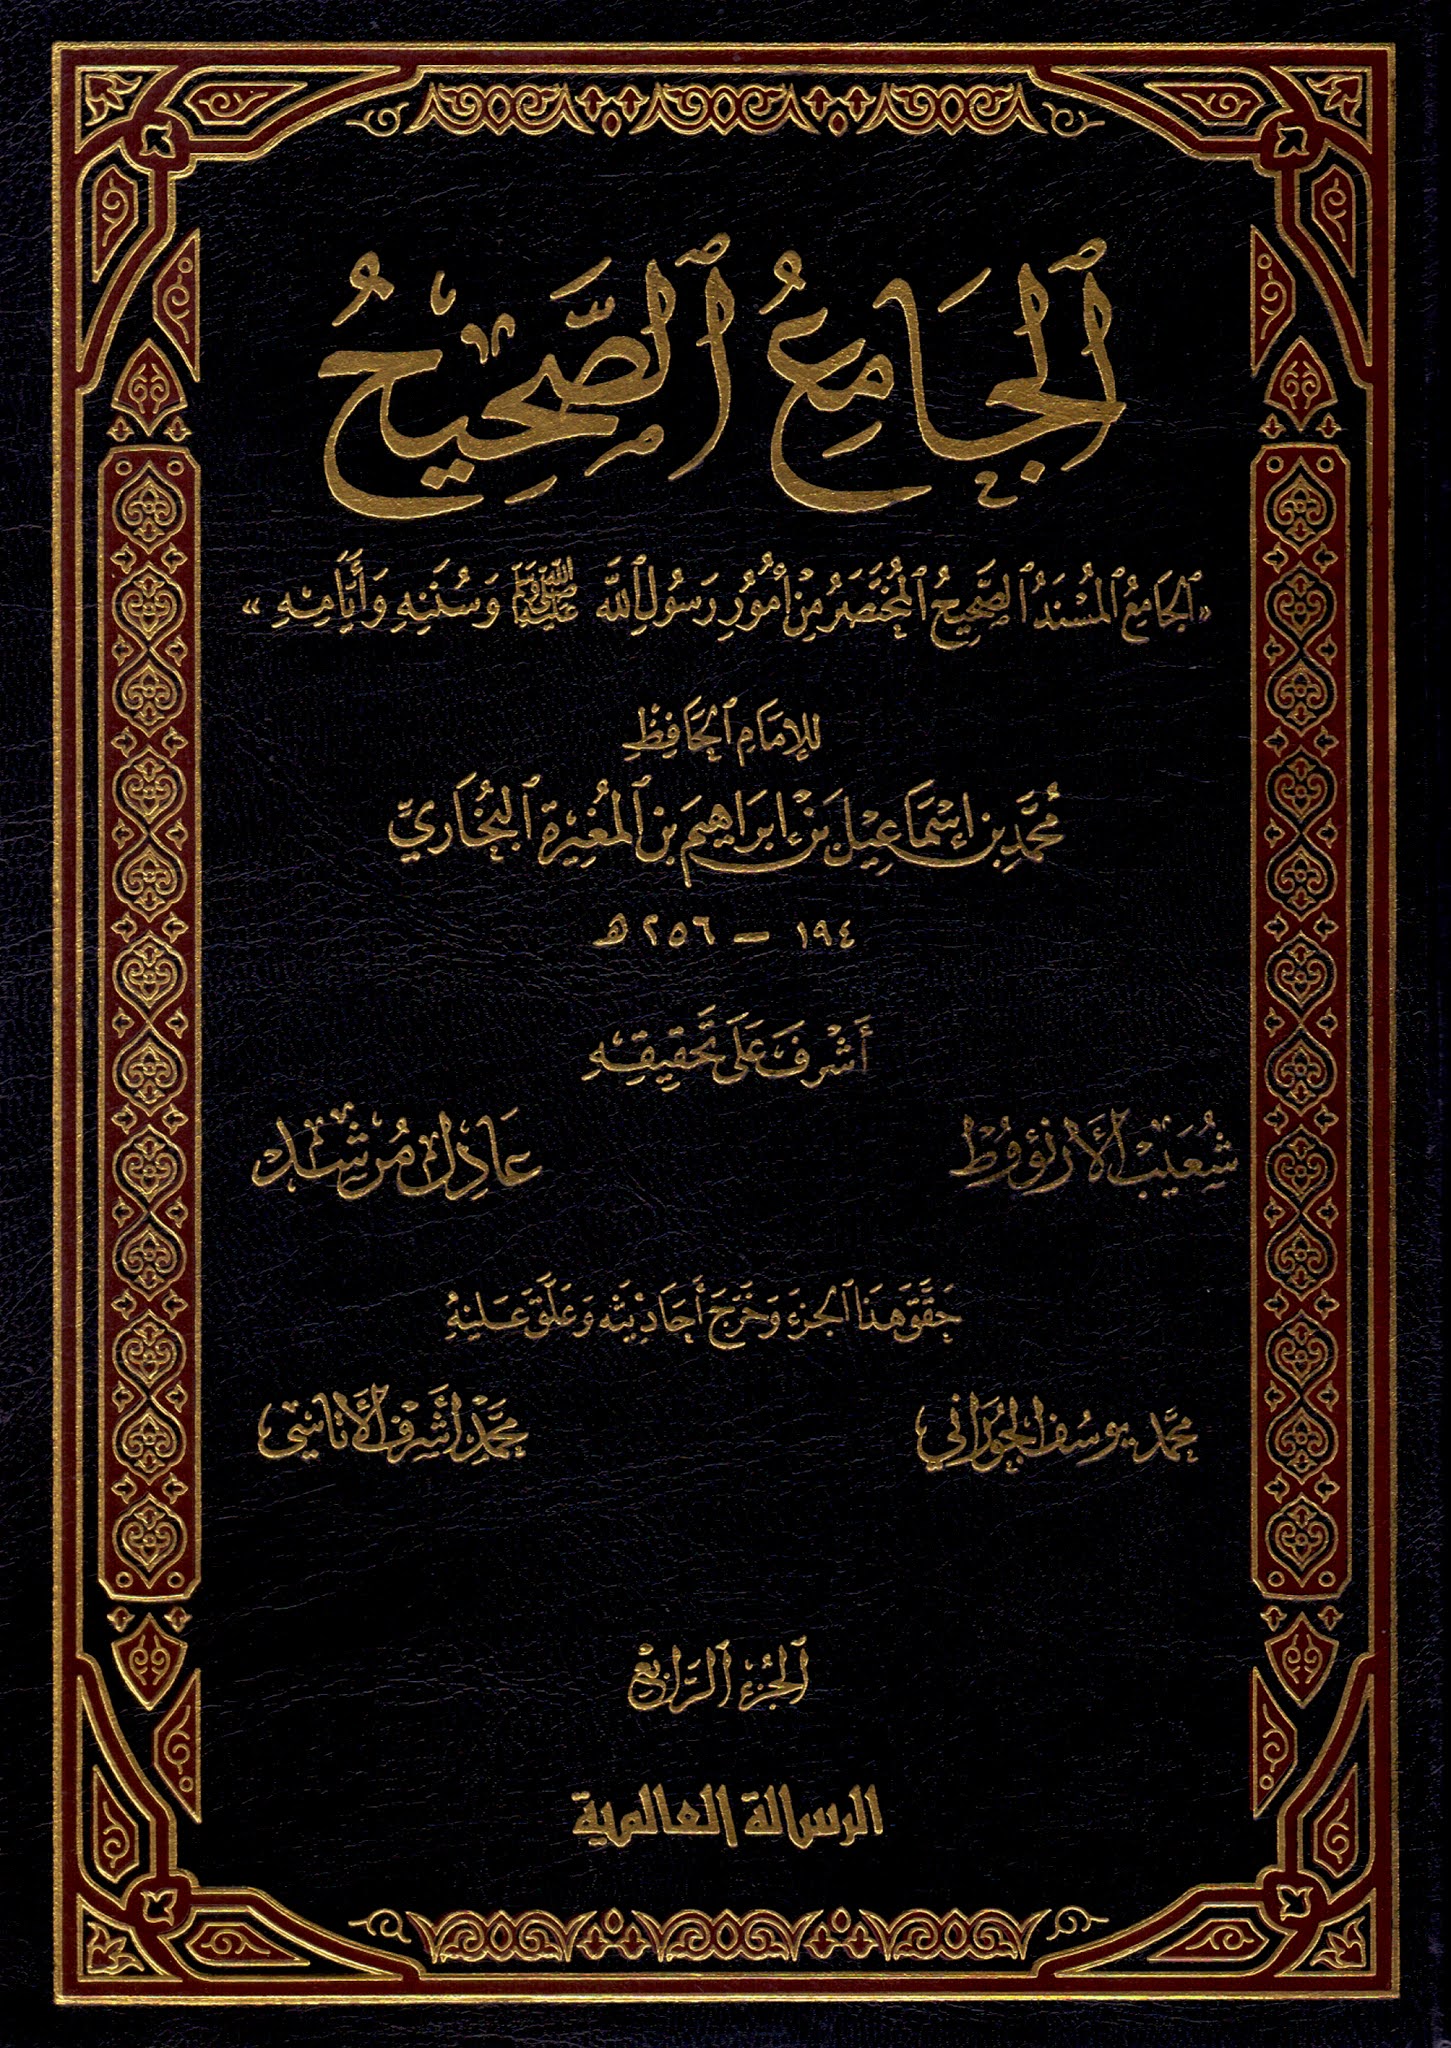 الجَامِعُ الصَّحِيحُ
«الجَامِعُ المُسْنَدُ الصَّحِيحُ المُخْتَصَرُ مِنْ أُمُورِ رَسُولِ اللَّه ﷺ وَسُنَنِهِ وَأَيَّامِهِ»
لِلإمَامِ الحَافِظِ
مُحَمَّد بن إِسْمَاعِيل بن إبرَاهِيم بن المُغِيرَة البُخَارِيّ
١٩٤ – ٢٥٦ هـ
أَشْرَفَ عَلَى تَحقِيقِهِ
شُعَيب الأرنؤوط عَادِل مُرشد
حَقَّقَ هَذَا الجزءَ وَخَرَّجَ أَحَادِيثَه وَعَلَّقَ عَلَيهِ
محمَّد يوسُف الجُورَاني محمَّد أشرف الأتاسِي
الجُزءُ الرَّابع
الرسالة العالمية